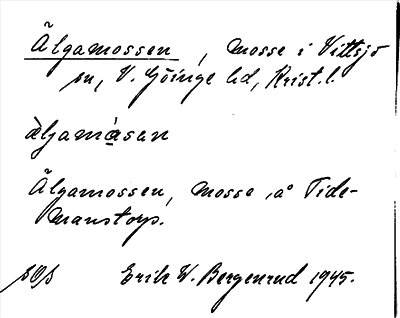 Älgamossen, mosse i Vittsjö
sn, V. Göinge hd, Krist. l.
àljamåsan
Älgamossen, mosse å Tide-
manstorp.
Erik W. Bergenrud 1945.